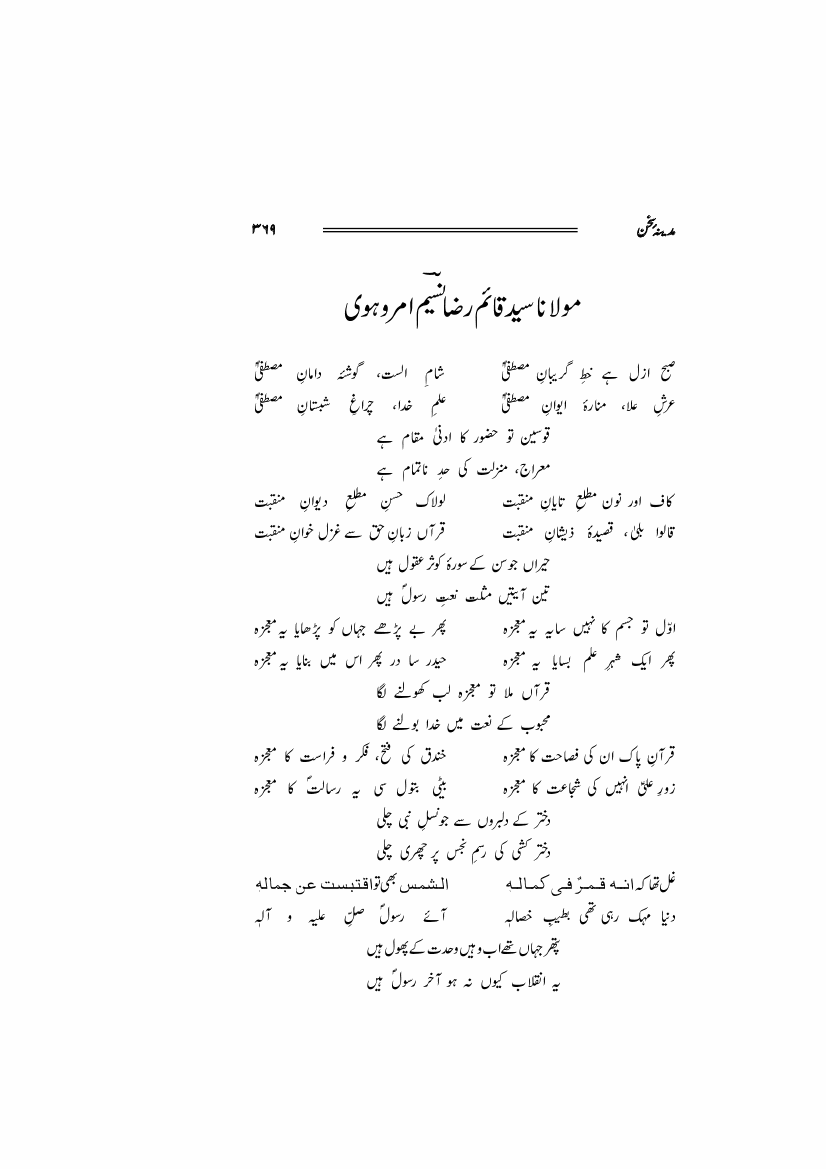 مدینۂ سخن ۳۶۹
مولانا سید قائم رضا نسیم امروہوی
صبح ازل ہے خطِ گریبانِ مصطفیٰؐ شامِ الست، گوشئہ دامانِ مصطفیٰؐ
عرشِ علا، منارۂ ایوانِ مصطفیٰؐ علمِ خدا، چراغِ شبستانِ مصطفیٰؐ
قوسین تو حضور کا ادنیٰ مقام ہے
معراج، منزلت کی حدِ ناتمام ہے
کاف اور نون مطلعِ تابانِ منقبت لولاک حسنِ مطلعِ دیوانِ منقبت
قالوا بلیٰ، قصیدۂ ذیشانِ منقبت قرآں زبانِ حق سے غزل خوانِ منقبت
حیراں جو سن کے سورۂ کوثر عقول ہیں
تین آیتیں مثلث نعتِ رسولؐ ہیں
اوّل تو جسم کا نہیں سایہ یہ معجزہ پھر بے پڑھے جہاں کو پڑھایا یہ معجزہ
پھر ایک شہرِ علم بسایا یہ معجزہ حیدر سا در پھر اس میں بنایا یہ معجزہ
قرآں ملا تو معجزہ لب کھولنے لگا
محبوب کے نعت میں خدا بولنے لگا
قرآنِ پاک ان کی فصاحت کا معجزہ خندق کی فتح، فکر و فراست کا معجزہ
زورِ علیؑ انہیں کی شجاعت کا معجزہ بیٹی بتول سی یہ رسالتؐ کا معجزہ
دختر کے دلبروں سے جو نسلِ نبی چلی
دختر کشی کی رسمِ نجس پر چھری چلی
غل تھا کہ انہ قمرٌ فی کمالہ الشمس بھی تو اقتبست عن جمالہ
دنیا مہک رہی تھی بطیبِ خصالہٖ آئے رسولؐ صلِّ علیہ و آلہٖ
پتھر جہاں تھے اب وہیں وحدت کے پھول ہیں
یہ انقلاب کیوں نہ ہو آخر رسولؐ ہیں